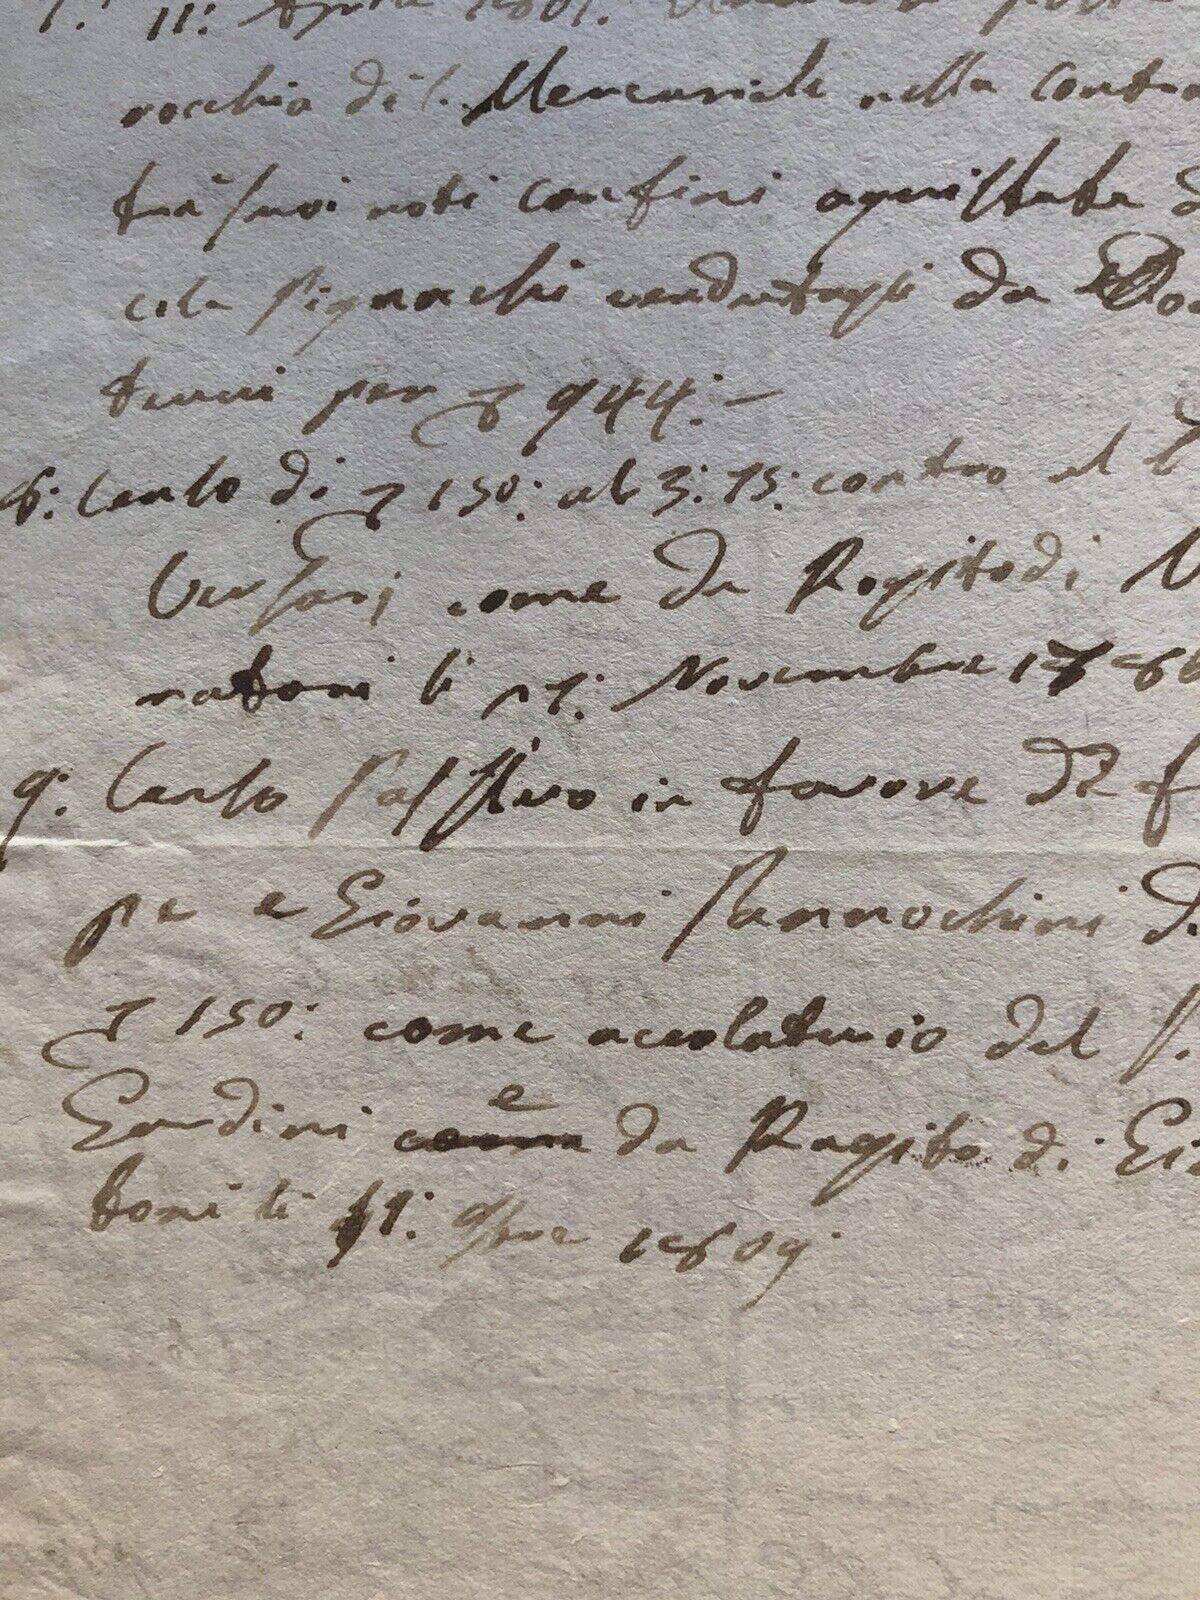 11: Aprile 1801.
rocchia di S. Mercuriale nella contra
trà suoi noti confini aquistata d
cola Pignochi vendutagli da
tucci per 944: –
8: Censo di 150: al 3: 75: contro al
Versari come da Rogito di
ratoni li 17: Novembre 180
9: Censo Passivo in favore di F
pe e Giovanni Pannochini d
150: come accolatario del S.
Gardini e da Rogito di Gi
toni li 11: 9bre 1809